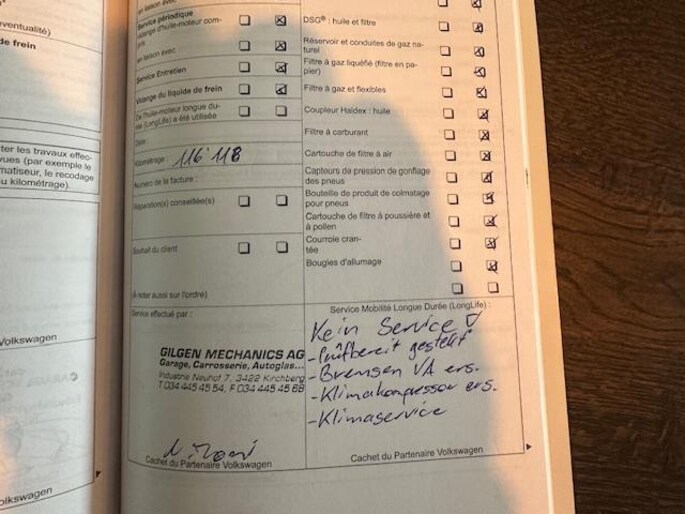 éventualité)
de frein
ter les travaux effec-
vues (par exemple le
matiseur, le recodage
u kilométrage).
Volkswagen
olkswagen
en liaison avec
Service périodique
vidange d'huile-moteur com-
pris
en liaison avec
Service Entretien
Vidange du liquide de frein
De l'huile-moteur longue du-
rée (LongLife) a été utilisée
Date :
Kilométrage : 116'118
Numéro de la facture :
Réparation(s) conseillée(s)
Souhait du client
(À noter aussi sur l'ordre)
Service effectué par :
GILGEN MECHANICS AG
Garage, Carrosserie, Autoglas...
Industrie Neuhof 7, 3422 Kirchberg
T 034 445 45 54, F 034 445 45 68
Cachet du Partenaire Volkswagen
DSG® : huile et filtre
Réservoir et conduites de gaz na-
turel
Filtre à gaz liquéfié (filtre en pa-
pier)
Filtre à gaz et flexibles
Coupleur Haldex : huile
Filtre à carburant
Cartouche de filtre à air
Capteurs de pression de gonflage
des pneus
Bouteille de produit de colmatage
pour pneus
Cartouche de filtre à poussière et
à pollen
Courroie cran-
tée
Bougies d'allumage
Service Mobilité Longue Durée (LongLife) :
Kein Service
- Prüfbereit gestellt
- Bremsen VA ers.
- Klimakompressor ers.
- Klimaservice
Cachet du Partenaire Volkswagen